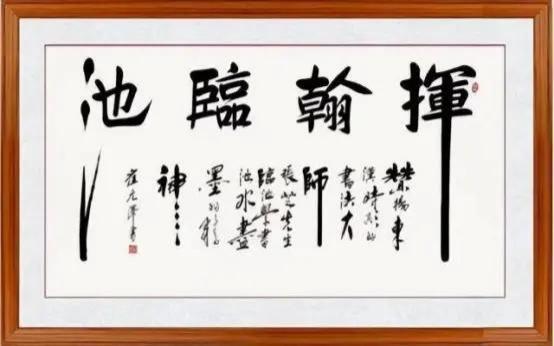 揮翰臨池
東
漢時的
書法大
師
張芝先生
臨池學書
池水盡
墨的
神……
崔元
書